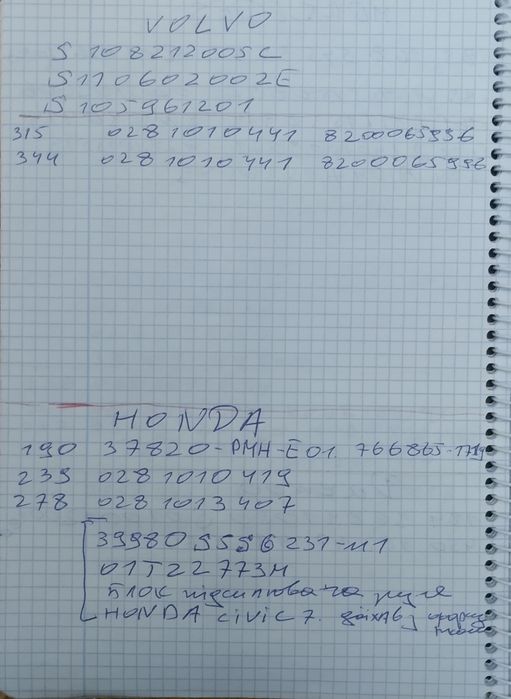 VOLVO
S108212005C
S110602002E
S105961201
315 0281010441 8200065996
344 0281010441 8200065996
HONDA
190 37820-PMH-E01. 766865-
239 0281010419
278 0281013407
39980S5S6231-M1
01T22773M
Блок підсилювача руля
HONDA civic 7.